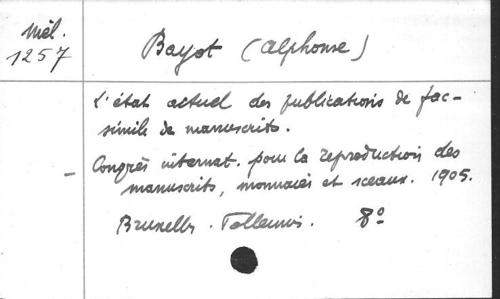 Mél.
1257
Bayot (Alphonse)
L'état actuel des publications de fac-
similé de manuscrits.
— Congrès internat. pour la reproduction des
manuscrits, monnaies et sceaux. 1905.
Bruxelles. Polleunis. 8º